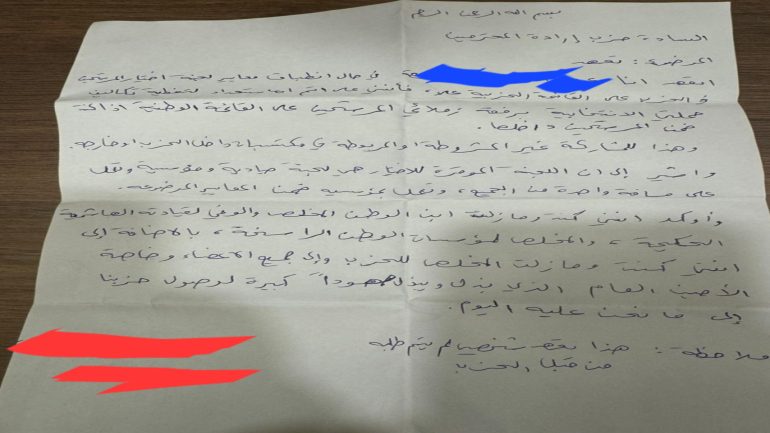 بسم الله الرحمن الرحيم
السادة حزب إرادة المحترمين
الموضوع : تعهد
اتعهد انا في حال انطباق معايير لجنة اختيار المرشحين
في الحزب على القائمة الحزبية على، فأنني على اتم استعداد لتغطية تكاليف
حملتي الانتخابية برفقة زملائي المرشحين على القائمة الوطنية اذا كنت
ضمن المرشحين داخلها.
وهذا للمشاركة غير المشروطة والمربوطة في مكتسبات داخل الحزب او خارجه.
واشير إلى ان اللجنة الموقرة للاختيار هي لجنة حيادية ومؤسسية وتقف
على مسافة واحدة من الجميع، وتعمل بمؤسسية ضمن المعايير الموضوعه.
وأوكد انني كنت وما زلت ابن الوطن المخلص والوفي لقيادته الهاشمية
الحكيمة، والمخلص لمؤسسات الوطن الراسخة، بالاضافة إلى
انني كنت وما زلت المخلص للحزب وإلى جميع اعضاءه وخاصة
الأمين العام الذي بذل ويبذل جهوداً كبيرة لوصول حزبنا
إلى ما نحن عليه اليوم.
ملاحظة : هذا تعهد شخصي لم يتم طلبه
من قبل الحزب